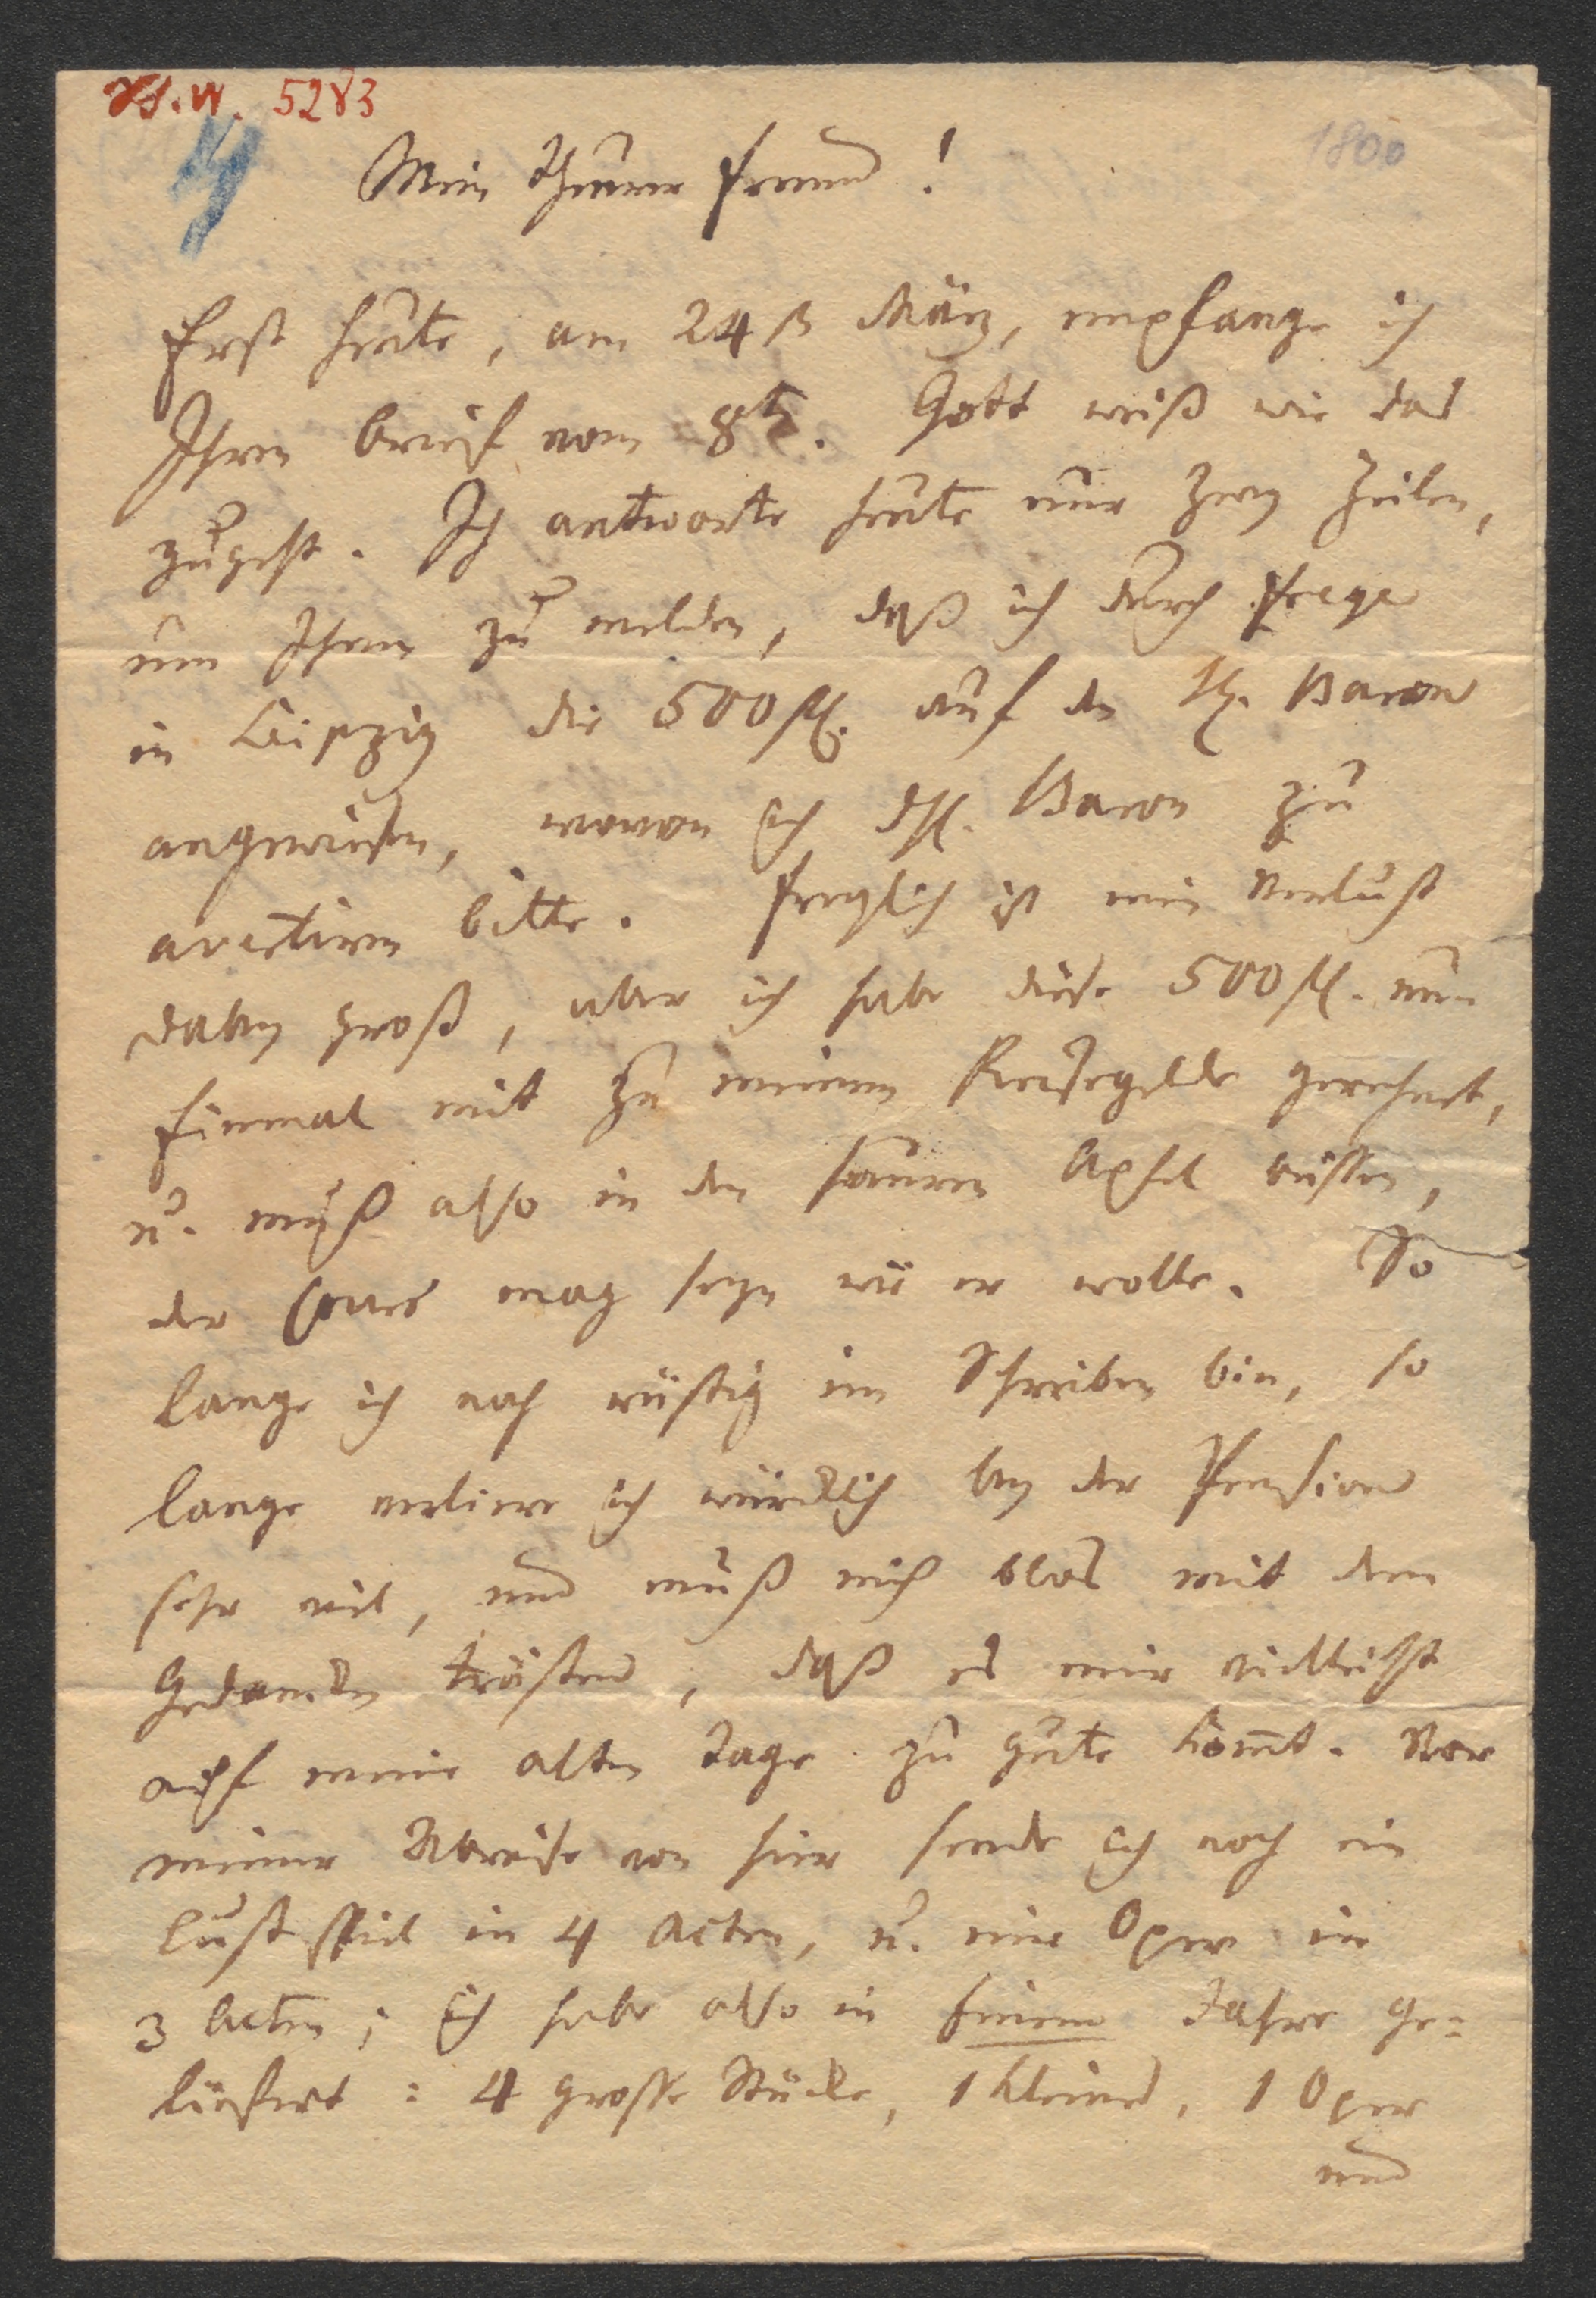 H. W. 5283
1800
4
Mein theurer Freund!
Erst heute, am 24ſt März, empfange ich
Ihren Brief vom 8t. Gott weiß wie das
zugeht. Ich antworte heute nur zwey Zeilen,
um Ihnen zu melden, daß ich durch Frege
in Leipzig die 500 fl. auf den H. Baron
angewiesen, wovon ich dH. Baron zu
avertiren bitte. Freylich ist mein Verlust
dabey groß, aber ich habe diese 500 fl. nun
Einmal mit zu meinem Reisegelde gerechnet,
u. muß also in den sauren Apfel beissen,
der Cours mag seyn wie er wolle. So
lange ich noch rüstig im Schreiben bin, so
lange verliere ich würcklich bey der Pension
sehr viel, und muß mich blos mit dem
Gedancken trösten, daß es mir vielleicht
auf meine alten Tage zu gute kom̅t. Vor
meiner Abreise von hier sende ich noch ein
Lustspiel in 4 Acten, u. eine Oper in
3 Acten; ich habe also in Einem Jahre ge=
liefert: 4 grosse Stücke, 1 kleines, 1 Oper
und